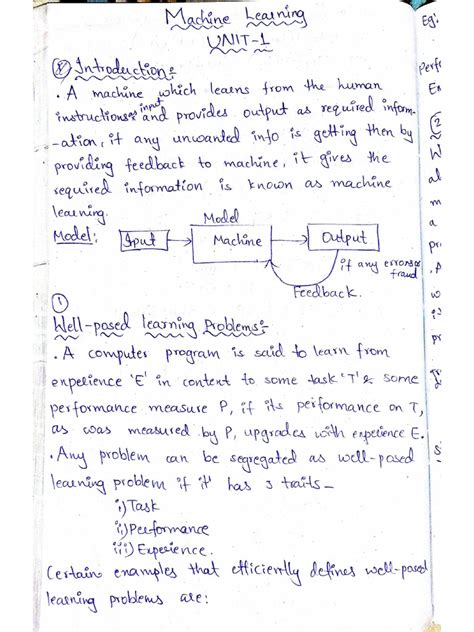 Machine Learning
UNIT-1
Introduction:
. A machine which learns from the human
instructions input and provides output as required inform-
-ation, if any unwanted info is getting then by
providing feedback to machine, it gives the
required information is known as machine
learning.
Model
Model: Input Machine Output
if any errors or
fraud
Feedback.
1
Well-posed learning Problems:-
. A computer program is said to learn from
experience 'E' in context to some task 'T' & some
performance measure P, if its performance on T,
as was measured by P, upgrades with experience E.
. Any problem can be segregated as well-posed
learning problem if it has 3 traits -
i) Task
ii) Performance
iii) Experience.
Certain examples that efficiently defines well-posed
learning problems are:
Eg:
2